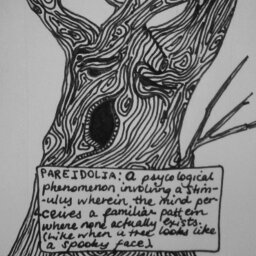 PAREIDOLIA: a psycological
phenomenon involving a stim-
ulus wherein the mind per-
ceives a familiar pattern
where none actually exists.
(Like when a tree looks like
a spooky face).